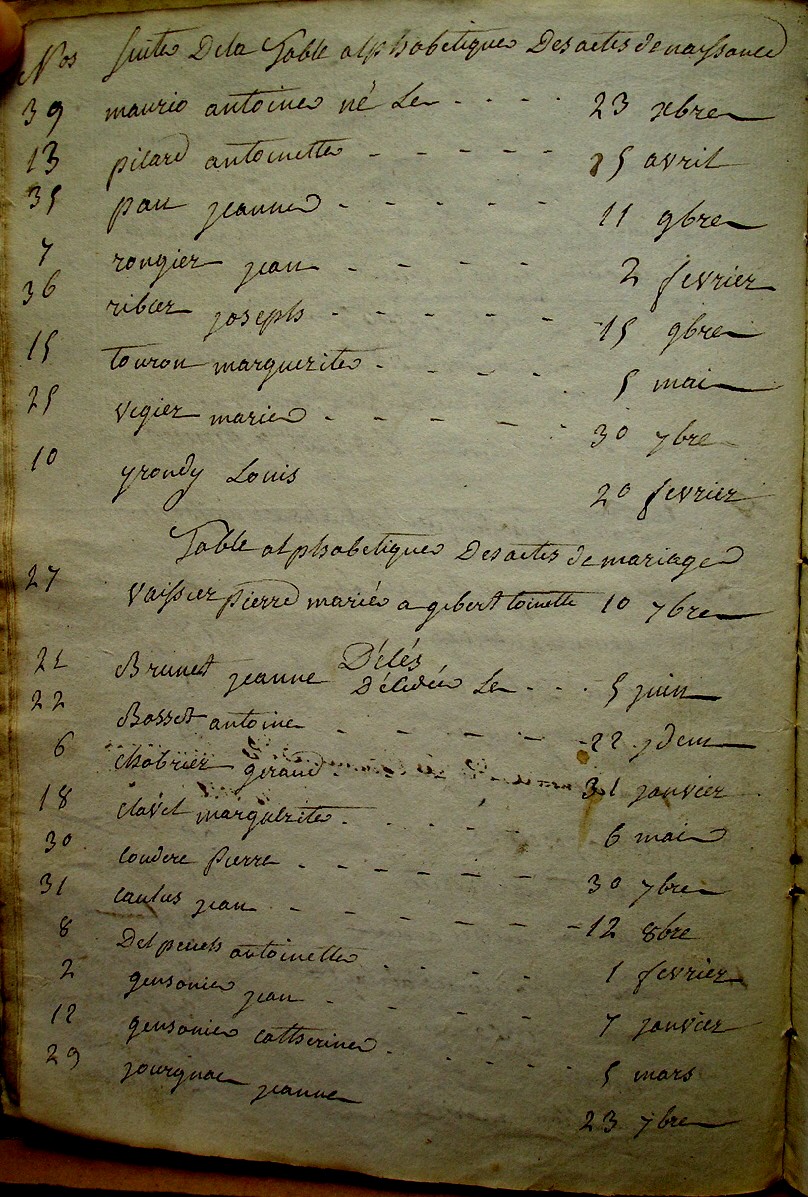 Nos Suite De la Table alphabetique Des actes de naissance
39 maurio antoine né Le 23 xbre
13 picard antoinette 15 avril
35 pau jeanne 11 9bre
7 rongier jean 2 fevrier
36 ribier joseph 15 9bre
15 touron marguerite 5 mai
25 vigier marie 30 7bre
10 yrondy Louis 20 fevrier
Table alphabetique Des actes de mariage
27 vaissier pierre marié a gibert toinette 10 7bre
Décés
21 Brunet jeanne Décédée Le 5 juin
22 Bosset antoine 22 jdem
6 chabrier geraud 31 janvier
18 clavel marguerite 6 mai
30 couderc pierre 30 7bre
31 caulus jean 12 8bre
8 Delpeuch antoinette 1 fevrier
2 gensonie jean 7 janvier
12 gensonie catherine 5 mars
29 jourgnac jeanne 23 7bre